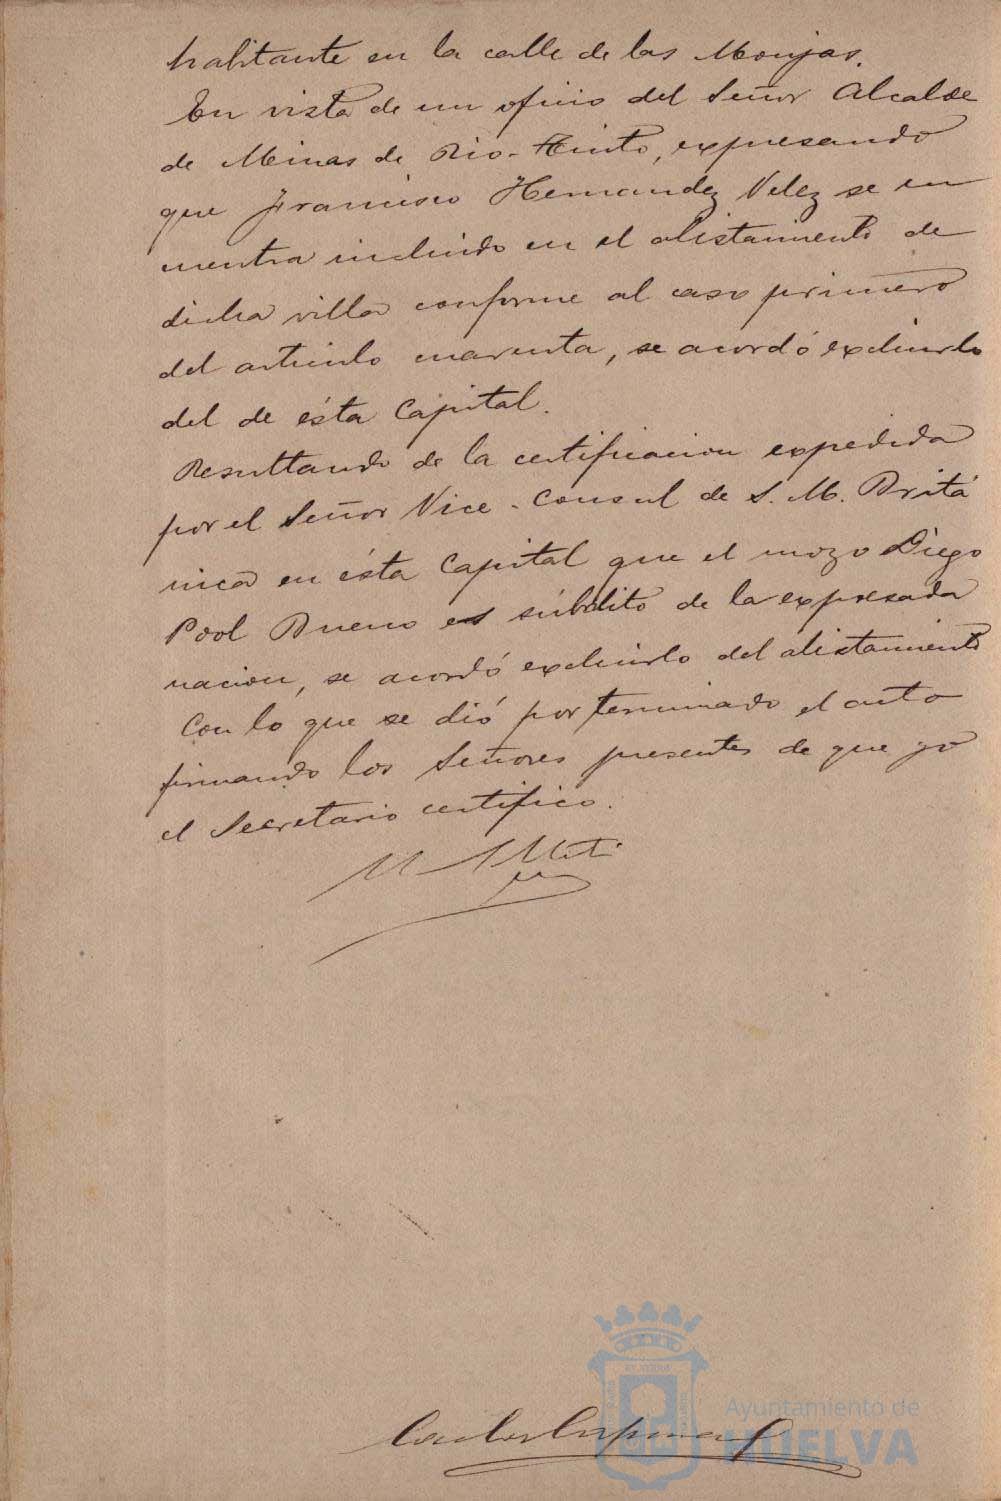 habitante en la calle de las Monjas.
En vista de un oficio del Señor Alcalde
de Minas de Rio-Tinto, expresando
que Francisco Hernandez Velez se en
cuentra incluido en el alistamiento de
dicha villa conforme al caso primero
del articulo cuarenta, se acordó excluirlo
del de ésta Capital.
Resultando de la certificacion expedida
por el Señor Vice-Consul de S. M. Britá
nica en ésta Capital que el mozo Diego
Pool Bueno es súbdito de la expresada
nacion, se acordó excluirlo del alistamiento
Con lo que se dió por terminado el acto
firmando los Señores presentes de que yo
el Secretario certifico.
Ayuntamiento de
HUELVA